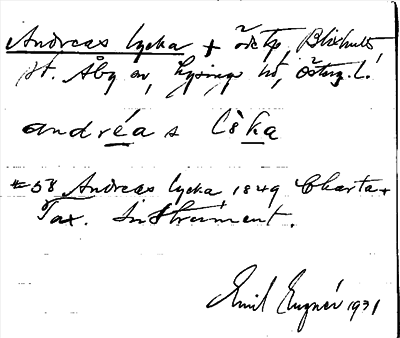 Andreas lycka + östp, Blixhult
St. Åby sn, Lysings hd, Österg. l.
andréa s lèka
=58 Andreas lycka 1849 Charta+
Tax. Instrument.
Emil Engnér 1931